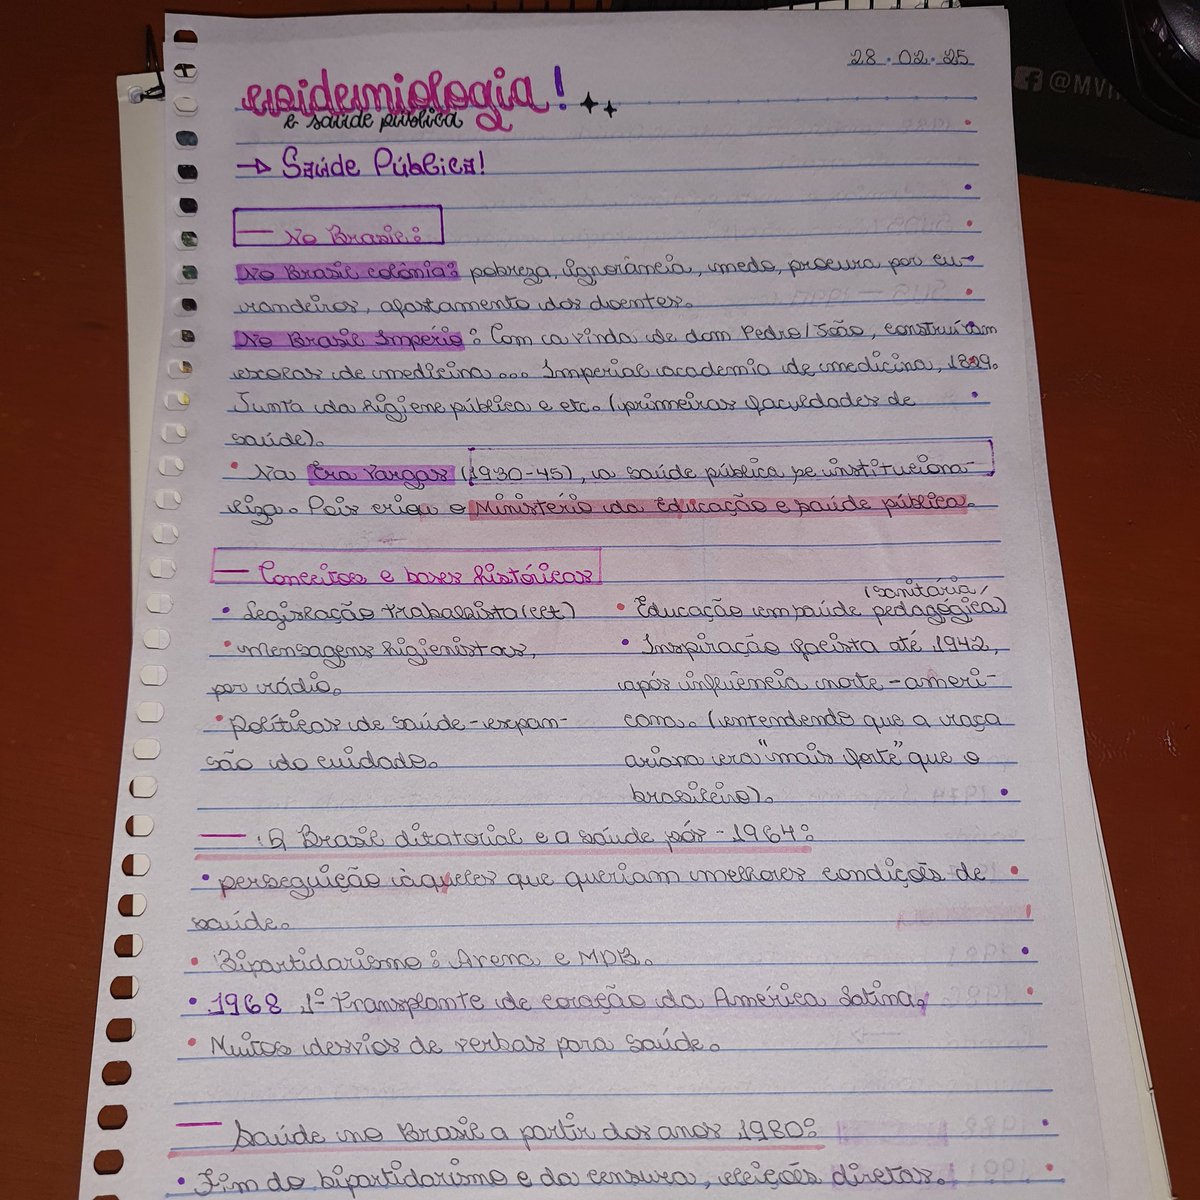 28.02.25
@MVI
epidemiologia!
e saúde pública
→ Saúde Pública!
— No Brasil:
No Brasil colônia: pobreza, ignorância, medo, procura por cu-
randeiros, afastamento dos doentes.
No Brasil Império: Com a vinda de dom Pedro/João, construíram
escolas de medicina... Imperial academia de medicina, 1829.
Junta da higiene pública e etc. (primeiras faculdades de
saúde).
• Na Era Vargas (1930-45), a saúde pública se instituciona-
liza. Pois criou o Ministério da Educação e saúde pública.
— Conceitos e bases históricas
• Legislação trabalhista (clt)
• Mensagens higienistas,
por rádio.
• Políticas de saúde - expan-
são do cuidado.
• Educação em saúde (sanitária/
pedagógica)
• Inspiração facista até 1942,
após influência norte-ameri-
cana. (entendendo que a raça
ariana era "mais forte" que o
brasileiro).
— O Brasil ditatorial e a saúde pós-1964:
• perseguição àqueles que queriam melhores condições de
saúde.
• Bipartidarismo: Arena e MDB.
• 1968 1º Transplante de coração da América Latina,
• Muitos desvios de verbas para saúde.
— Saúde no Brasil a partir dos anos 1980:
• Fim do bipartidarismo e da censura, eleições diretas.